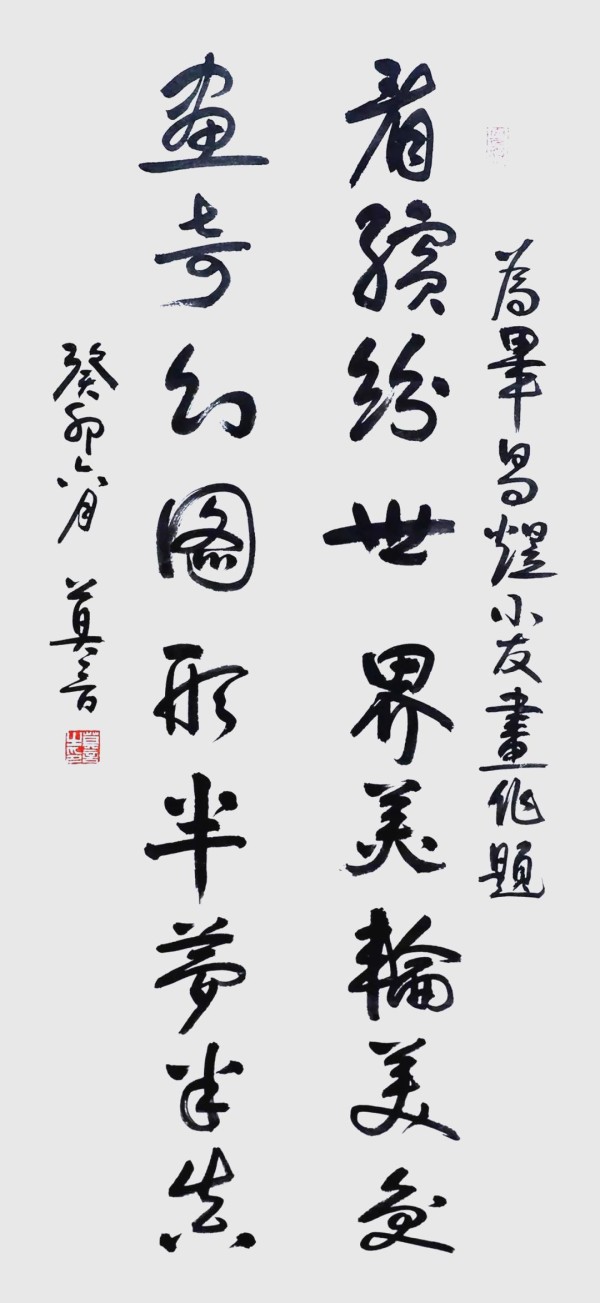 為畢昌煜小友畫作題
看繽紛世界美輪美奐
畫奇幻圖形半夢半真
癸卯六月 莫言